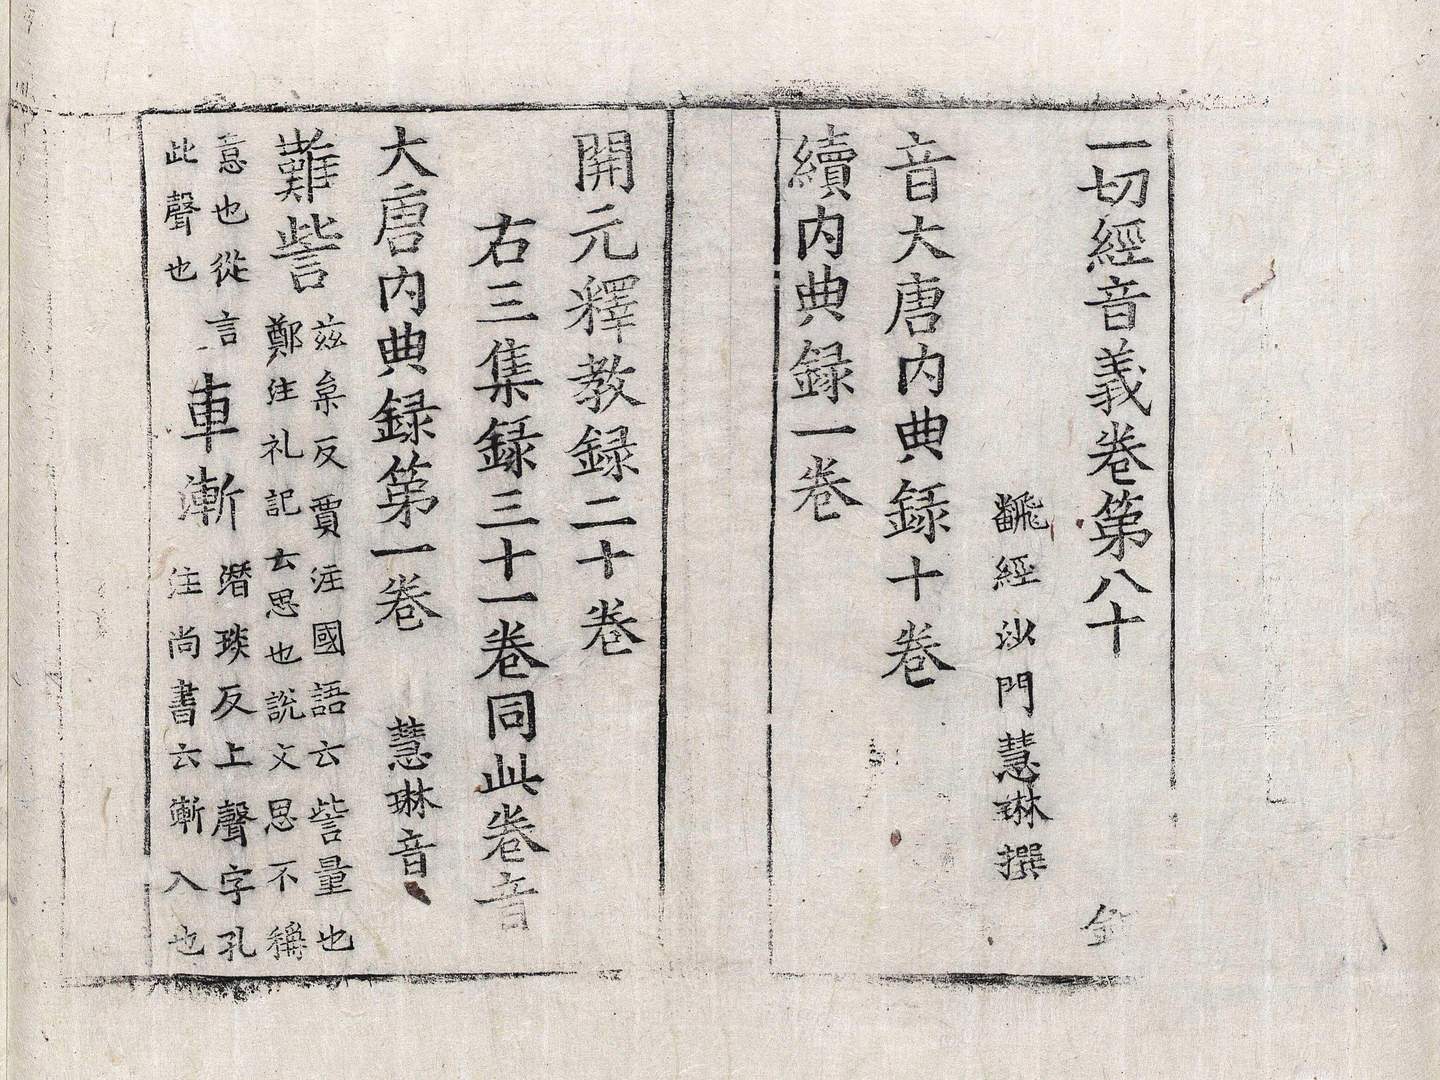 一切經音義卷第八十
飜經沙門慧琳撰
音大唐內典録十卷
續內典録一卷
開元釋教録二十卷
右三集録三十一卷同此卷音
大唐內典録第一卷 慧琳音
難訾 茲枲反賈注國語云訾量也
鄭注礼記云思也說文思不稱
意也從言
此聲也
車漸 潛琰反上聲字孔
注尚書云漸入也